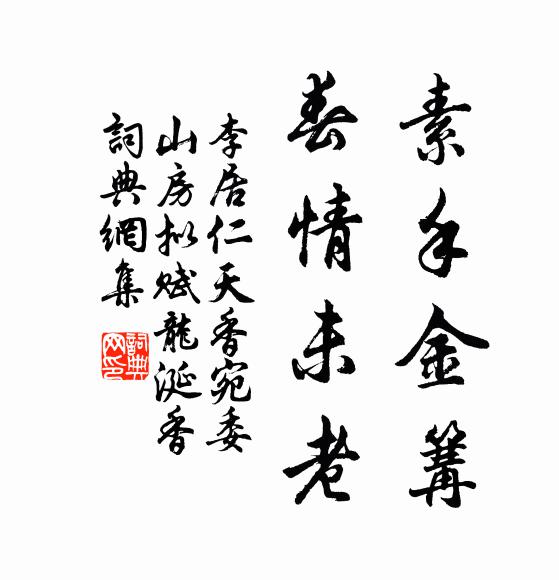 素手金篝
春情未老
李居仁天香宛委
山房拟赋龍涎香
詞典網集
詞典網印